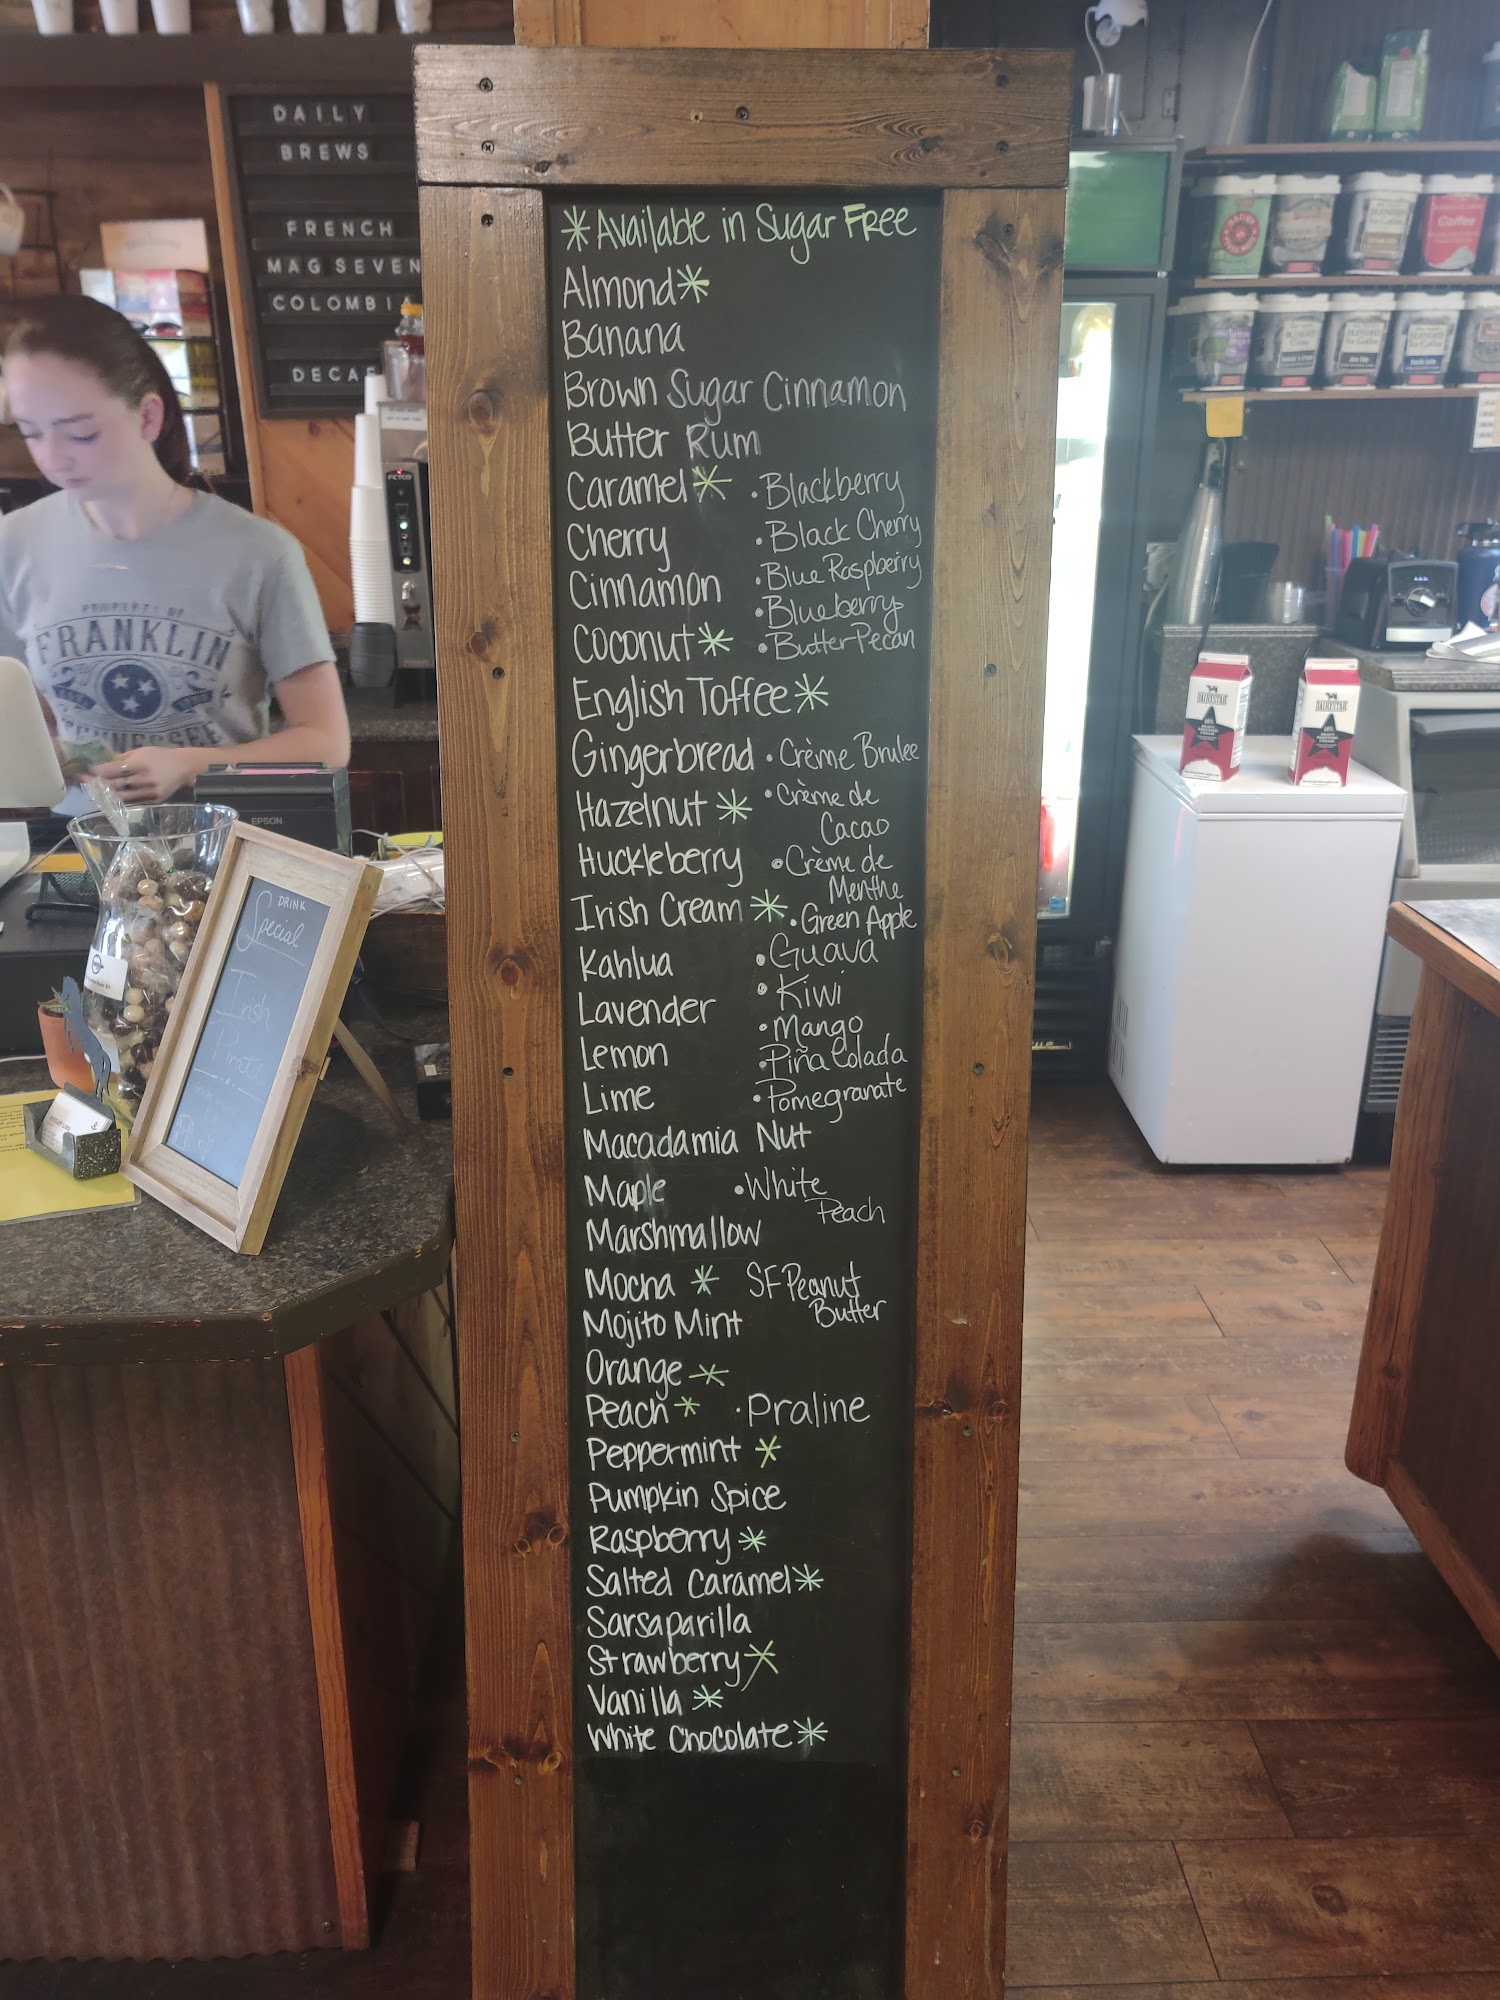 DAILY
BREWS
FRENCH
MAG SEVEN
COLOMBIA
DECAF
*Available in Sugar Free
Almond*
Banana
Brown Sugar Cinnamon
Butter Rum
Caramel*
Cherry
Cinnamon
Coconut*
English Toffee*
Gingerbread
Hazelnut*
Huckleberry
Irish Cream*
Kahlua
Lavender
Lemon
Lime
Macadamia Nut
Maple
Marshmallow
Mocha *
Mojito Mint
Orange *
Peach *
Peppermint *
Pumpkin Spice
Raspberry *
Salted Caramel*
Sarsaparilla
Strawberry*
Vanilla *
White Chocolate*
• Blackberry
• Black Cherry
• Blue Raspberry
• Blueberry
• Butter Pecan
• Crème Brulee
• Crème de
Cacao
• Crème de
Menthe
• Green Apple
• Guava
• Kiwi
• Mango
• Piña Colada
• Pomegranate
• White
Peach
SF Peanut
Butter
• Praline
PROPERTY OF
FRANKLIN
TENNESSEE
EPSON
DRINK
Special
Irish
Coffee